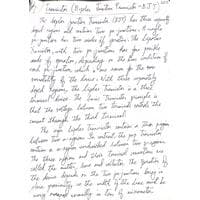 Transistor (Bipolar Junction Transistor - BJT)
The bipolar junction Transistor (BJT) has three separately
doped regions and contains two pn junctions. A single
pn junction has two modes of operation. The bipolar
Transistor, with two pn junctions has four possible
modes of operation, depending on the bias condition of
each pn junction, which is one reason for the
versatility of the device. With three separately
doped Regions, the bipolar Transistor is a three
terminal device. The basic Transistor principle is
that the voltage between two terminals controls the
current through the third terminal.
The npn bipolar Transistor contains a thin p-region
between two n-regions. In contrast, the pnp Transistor
contains a n-region sandwiched between two p-regions.
The three regions and their terminal connections are
called the emitter, base and collector. The operation of
the device depends on the two pn junctions being in
close proximity, so the width of the base must be
very narrow, normally in tens of